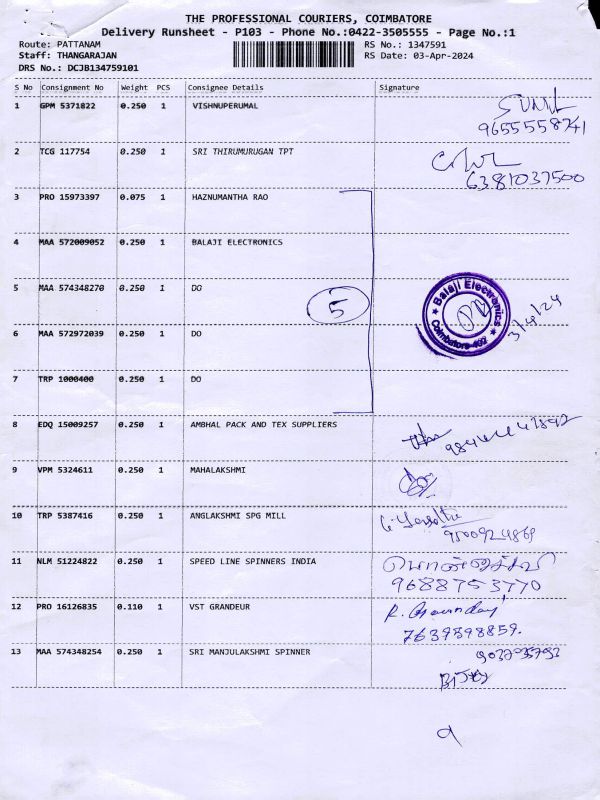 THE PROFESSIONAL COURIERS, COIMBATORE
Delivery Runsheet - P103 - Phone No.:0422-3505555 - Page No.:1
Route: PATTANAM RS No.: 1347591
Staff: THANGARAJAN RS Date: 03-Apr-2024
DRS No.: DCJB134759101
S No Consignment No Weight PCS Consignee Details Signature
1 GPM 5371822 0.250 1 VISHNUPERUMAL SUNIL
9655558741
2 TCG 117754 0.250 1 SRI THIRUMURUGAN TPT
6381037500
3 PRO 15973397 0.075 1 HAZNUMANTHA RAO
4 MAA 572009052 0.250 1 BALAJI ELECTRONICS
5 MAA 574348270 0.250 1 DO 5 Balaji Electronics Coimbatore-402 3/4/24
6 MAA 572972039 0.250 1 DO
7 TRP 1000400 0.250 1 DO
8 EDQ 15009257 0.250 1 AMBHAL PACK AND TEX SUPPLIERS
9 VPM 5324611 0.250 1 MAHALAKSHMI
10 TRP 5387416 0.250 1 ANGLAKSHMI SPG MILL
9500924869
11 NLM 51224822 0.250 1 SPEED LINE SPINNERS INDIA
9688753770
12 PRO 16126835 0.110 1 VST GRANDEUR
7639898859.
13 MAA 574348254 0.250 1 SRI MANJULAKSHMI SPINNER